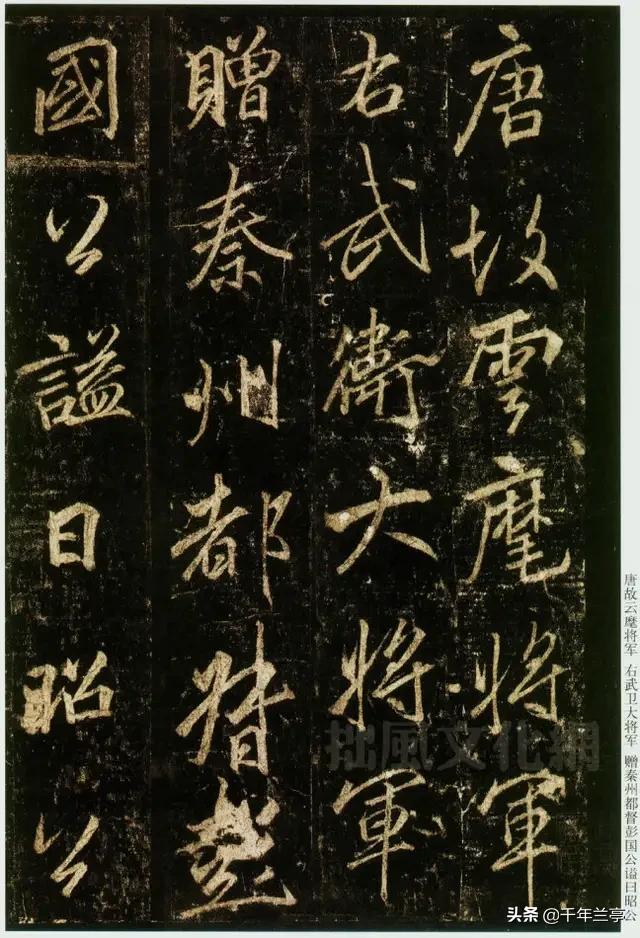 唐故雲麾將軍
右武衛大將軍
贈秦州都督彭
國公謚曰昭公
唐故云麾将军 右武卫大将军 赠秦州都督彭国公谥曰昭公
拙風文化網
头条 @千年兰亭